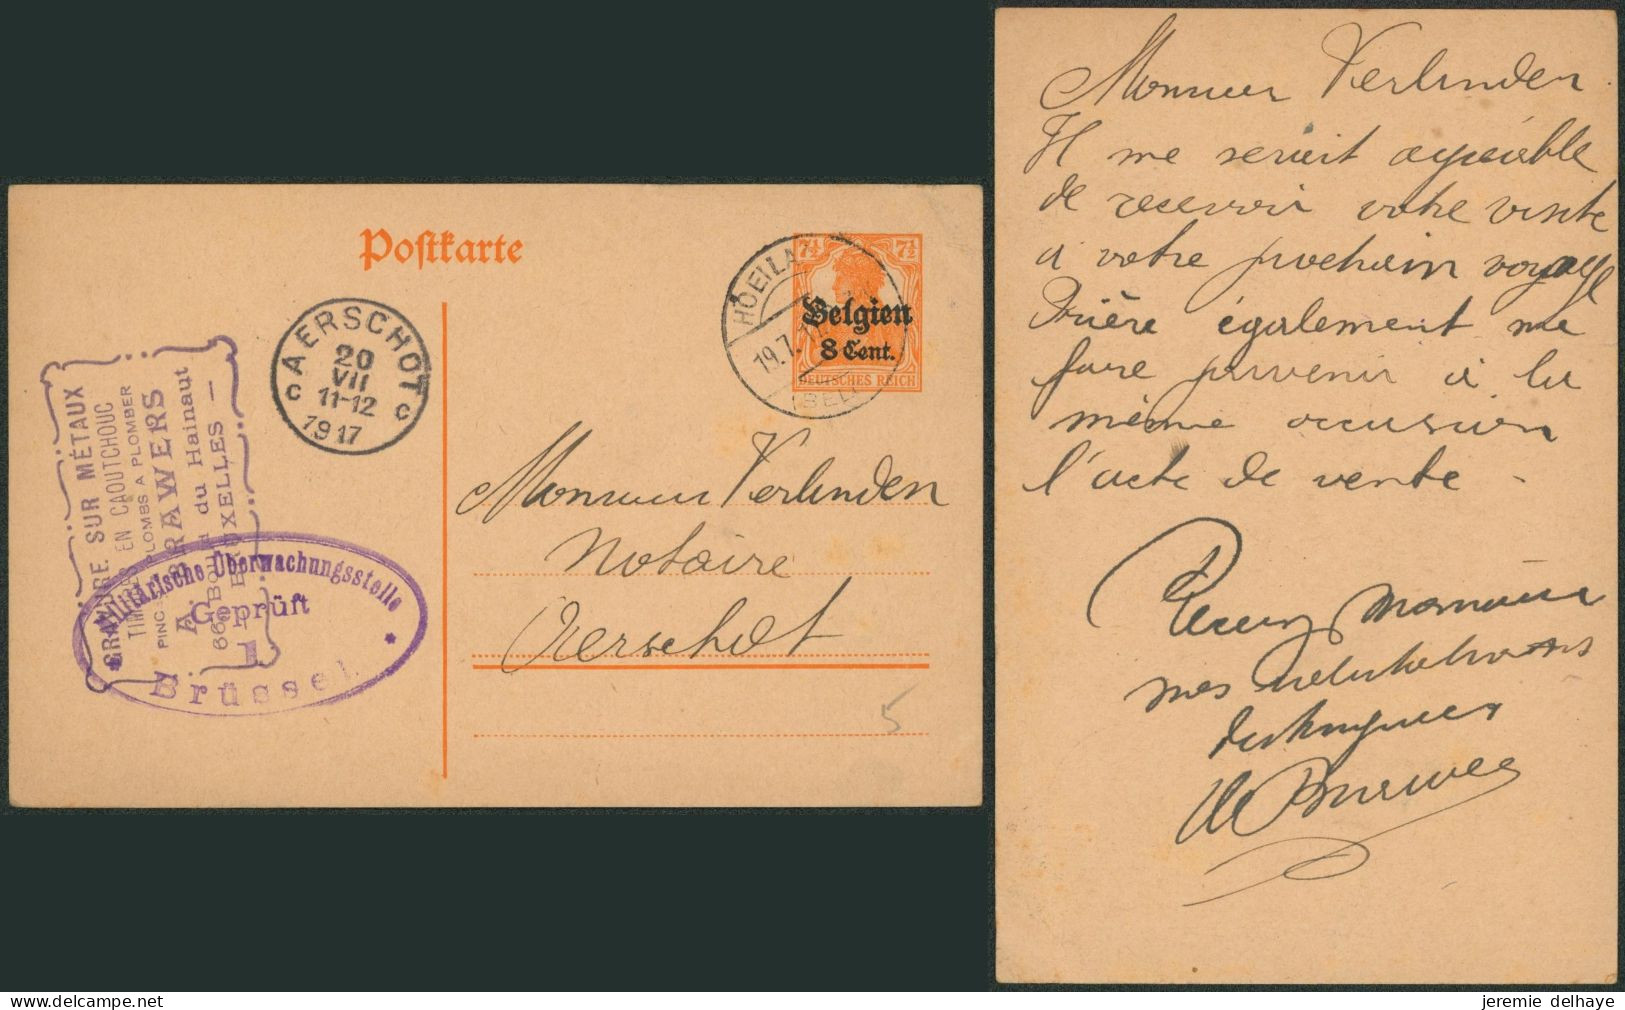 Postkarte
7½ 7½
Belgien
8 Cent.
DEUTSCHES REICH
HOEILA
19.7.
(BEL
AERSCHOT
20
VII
11-12
C C
1917
SUR MÉTAUX
EN CAOUTCHOUC
PLOMBS A PLOMBER
du Hainaut
Militärische Überwachungsstelle
Geprüft
1
Brüssel
Monsieur Verlinden
Notaire
Aerschot
5
Monsieur Verlinden
Il me serait agréable
de recevoir votre visite
à votre prochain voyage
Prière également me
faire parvenir à la
même occasion
l'acte de vente -
Recevez Monsieur
mes salutations
distinguées
jeremie delhaye